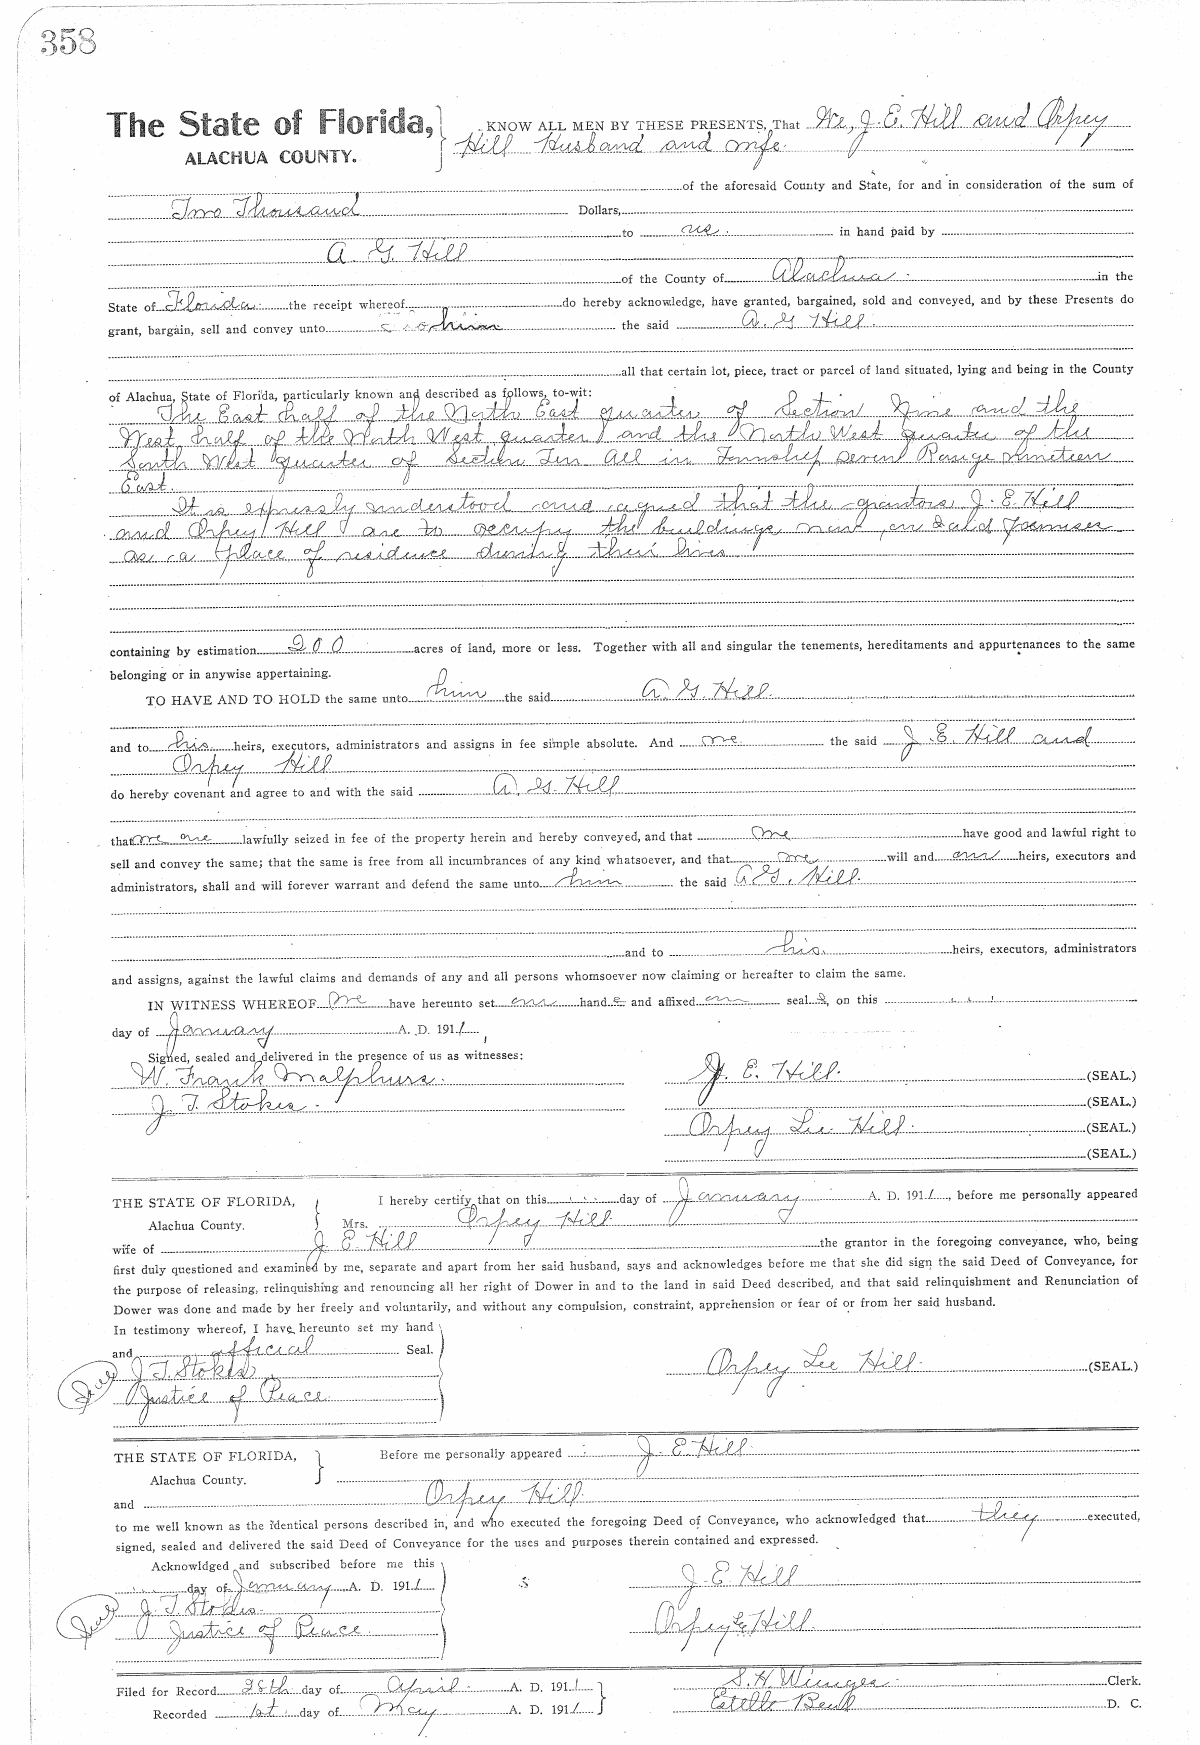 358
The State of Florida, KNOW ALL MEN BY THESE PRESENTS, That We, J. E. Hill and Orpey
ALACHUA COUNTY. Hill Husband and wife.
of the aforesaid County and State, for and in consideration of the sum of
Two Thousand Dollars,
to us. in hand paid by
A. G. Hill
of the County of Alachua in the
State of Florida the receipt whereof do hereby acknowledge, have granted, bargained, sold and conveyed, and by these Presents do
grant, bargain, sell and convey unto him the said A. G Hill.
all that certain lot, piece, tract or parcel of land situated, lying and being in the County
of Alachua, State of Florida, particularly known and described as follows, to-wit:
The East half of the North East quarter of Section Nine and the
West half of the North West quarter and the North West quarter of the
South West quarter of Section Ten All in Township seven Range nineteen
East.
It is expressly understood and agreed that the grantors J. E. Hill
and Orpey Hill are to occupy the buildings now on said premises
as a place of residence during their lives
containing by estimation 200 acres of land, more or less. Together with all and singular the tenements, hereditaments and appurtenances to the same
belonging or in anywise appertaining.
TO HAVE AND TO HOLD the same unto him the said A. G. Hill.
and to his heirs, executors, administrators and assigns in fee simple absolute. And we the said J. E. Hill and
Orpey Hill
do hereby covenant and agree to and with the said A. G. Hill
that we are lawfully seized in fee of the property herein and hereby conveyed, and that we have good and lawful right to
sell and convey the same; that the same is free from all incumbrances of any kind whatsoever, and that we will and our heirs, executors and
administrators, shall and will forever warrant and defend the same unto him the said A. G. Hill.
and to his heirs, executors, administrators
and assigns, against the lawful claims and demands of any and all persons whomsoever now claiming or hereafter to claim the same.
IN WITNESS WHEREOF We have hereunto set our hands and affixed our seals, on this
day of January A. D. 1911,
Signed, sealed and delivered in the presence of us as witnesses:
W. Frank Malphurs. J. E. Hill. (SEAL.)
J. T. Stokes. (SEAL.)
Orpey Lee Hill. (SEAL.)
(SEAL.)
THE STATE OF FLORIDA, I hereby certify that on this day of January A. D. 1911, before me personally appeared
Alachua County. Mrs. Orpey Hill
wife of J. E Hill the grantor in the foregoing conveyance, who, being
first duly questioned and examined by me, separate and apart from her said husband, says and acknowledges before me that she did sign the said Deed of Conveyance, for
the purpose of releasing, relinquishing and renouncing all her right of Dower in and to the land in said Deed described, and that said relinquishment and Renunciation of
Dower was done and made by her freely and voluntarily, and without any compulsion, constraint, apprehension or fear of or from her said husband.
In testimony whereof, I have hereunto set my hand
and official Seal.
Seal J. T. Stokes Orpey Lee Hill. (SEAL.)
Justice of Peace
THE STATE OF FLORIDA, Before me personally appeared J. E. Hill
Alachua County.
and Orpey Hill
to me well known as the identical persons described in, and who executed the foregoing Deed of Conveyance, who acknowledged that they executed,
signed, sealed and delivered the said Deed of Conveyance for the uses and purposes therein contained and expressed.
Acknowldged and subscribed before me this
day of January A. D. 1911 J. E Hill
Seal J. T. Stokes
Justice of Peace. Orpey Lee Hill.
Filed for Record 28th day of April A. D. 1911 S. H. Wienges Clerk.
Recorded 1st day of May A. D. 1911 D. C.